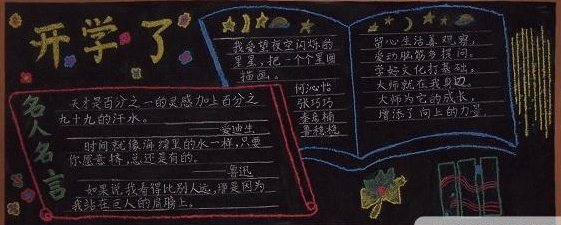 开学了
名人名言
天才是百分之一的灵感加上百分之
九十九的汗水。
——爱迪生
时间就像海绵里的水一样,只要
你愿意挤,总还是有的。
——鲁迅
如果说我看得比别人远,那是因为
我站在巨人的肩膀上。
我爱望夜空闪烁的
星星,把一个个星图
描画。
何沁怡
张巧巧
秦启楠
留心生活善观察,
爱动脑筋多提问。
学好文化打基础,
大师就在我身边。
大师为它的成长,
增添了向上的力量。